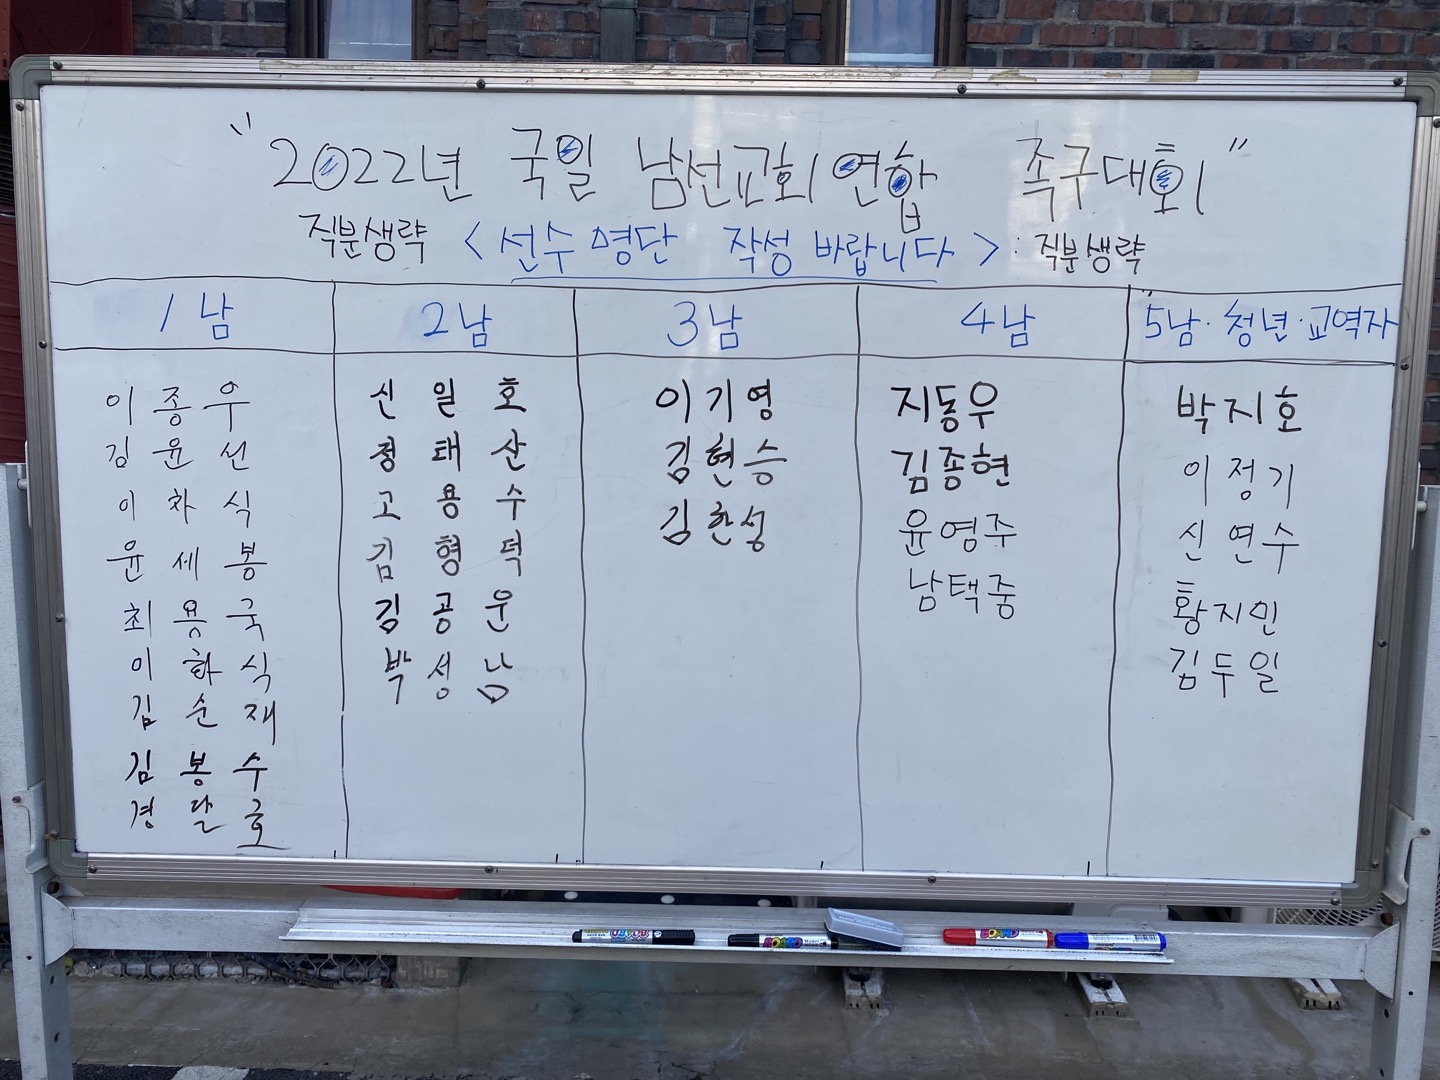 "2022년 국일 남선교회 연합 족구대회"
직분생략 <선수 명단 작성 바랍니다> : 직분생략
1남
이종우
김윤선
이차식
윤세봉
최용국
이화식
김순재
김봉수
경달호
2남
신일호
정태산
고용수
김형덕
김공운
박성남
3남
이기영
김현승
김한성
4남
지동우
김종현
윤영주
남택중
5남·청년·교역자
박지호
이정기
신연수
황지민
김두일
BOARD Marker
BOARD